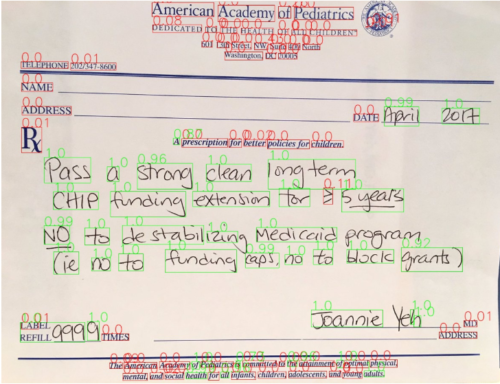 American Academy of Pediatrics
DEDICATED TO THE HEALTH OF ALL CHILDREN
601 13th Street, NW, Suite 400 North
Washington, DC 20005
TELEPHONE 202/347-8600
NAME
ADDRESS
DATE April 2017
Rx
A prescription for better policies for children.
Pass a strong clean long term
CHIP funding extension for ≥ 5 years
NO to destabilizing Medicaid program
(ie no to funding caps, no to block grants)
Joannie Yeh MD
LABEL
REFILL 9999 TIMES
ADDRESS
The American Academy of Pediatrics is committed to the attainment of optimal physical,
mental, and social health for all infants, children, adolescents, and young adults.